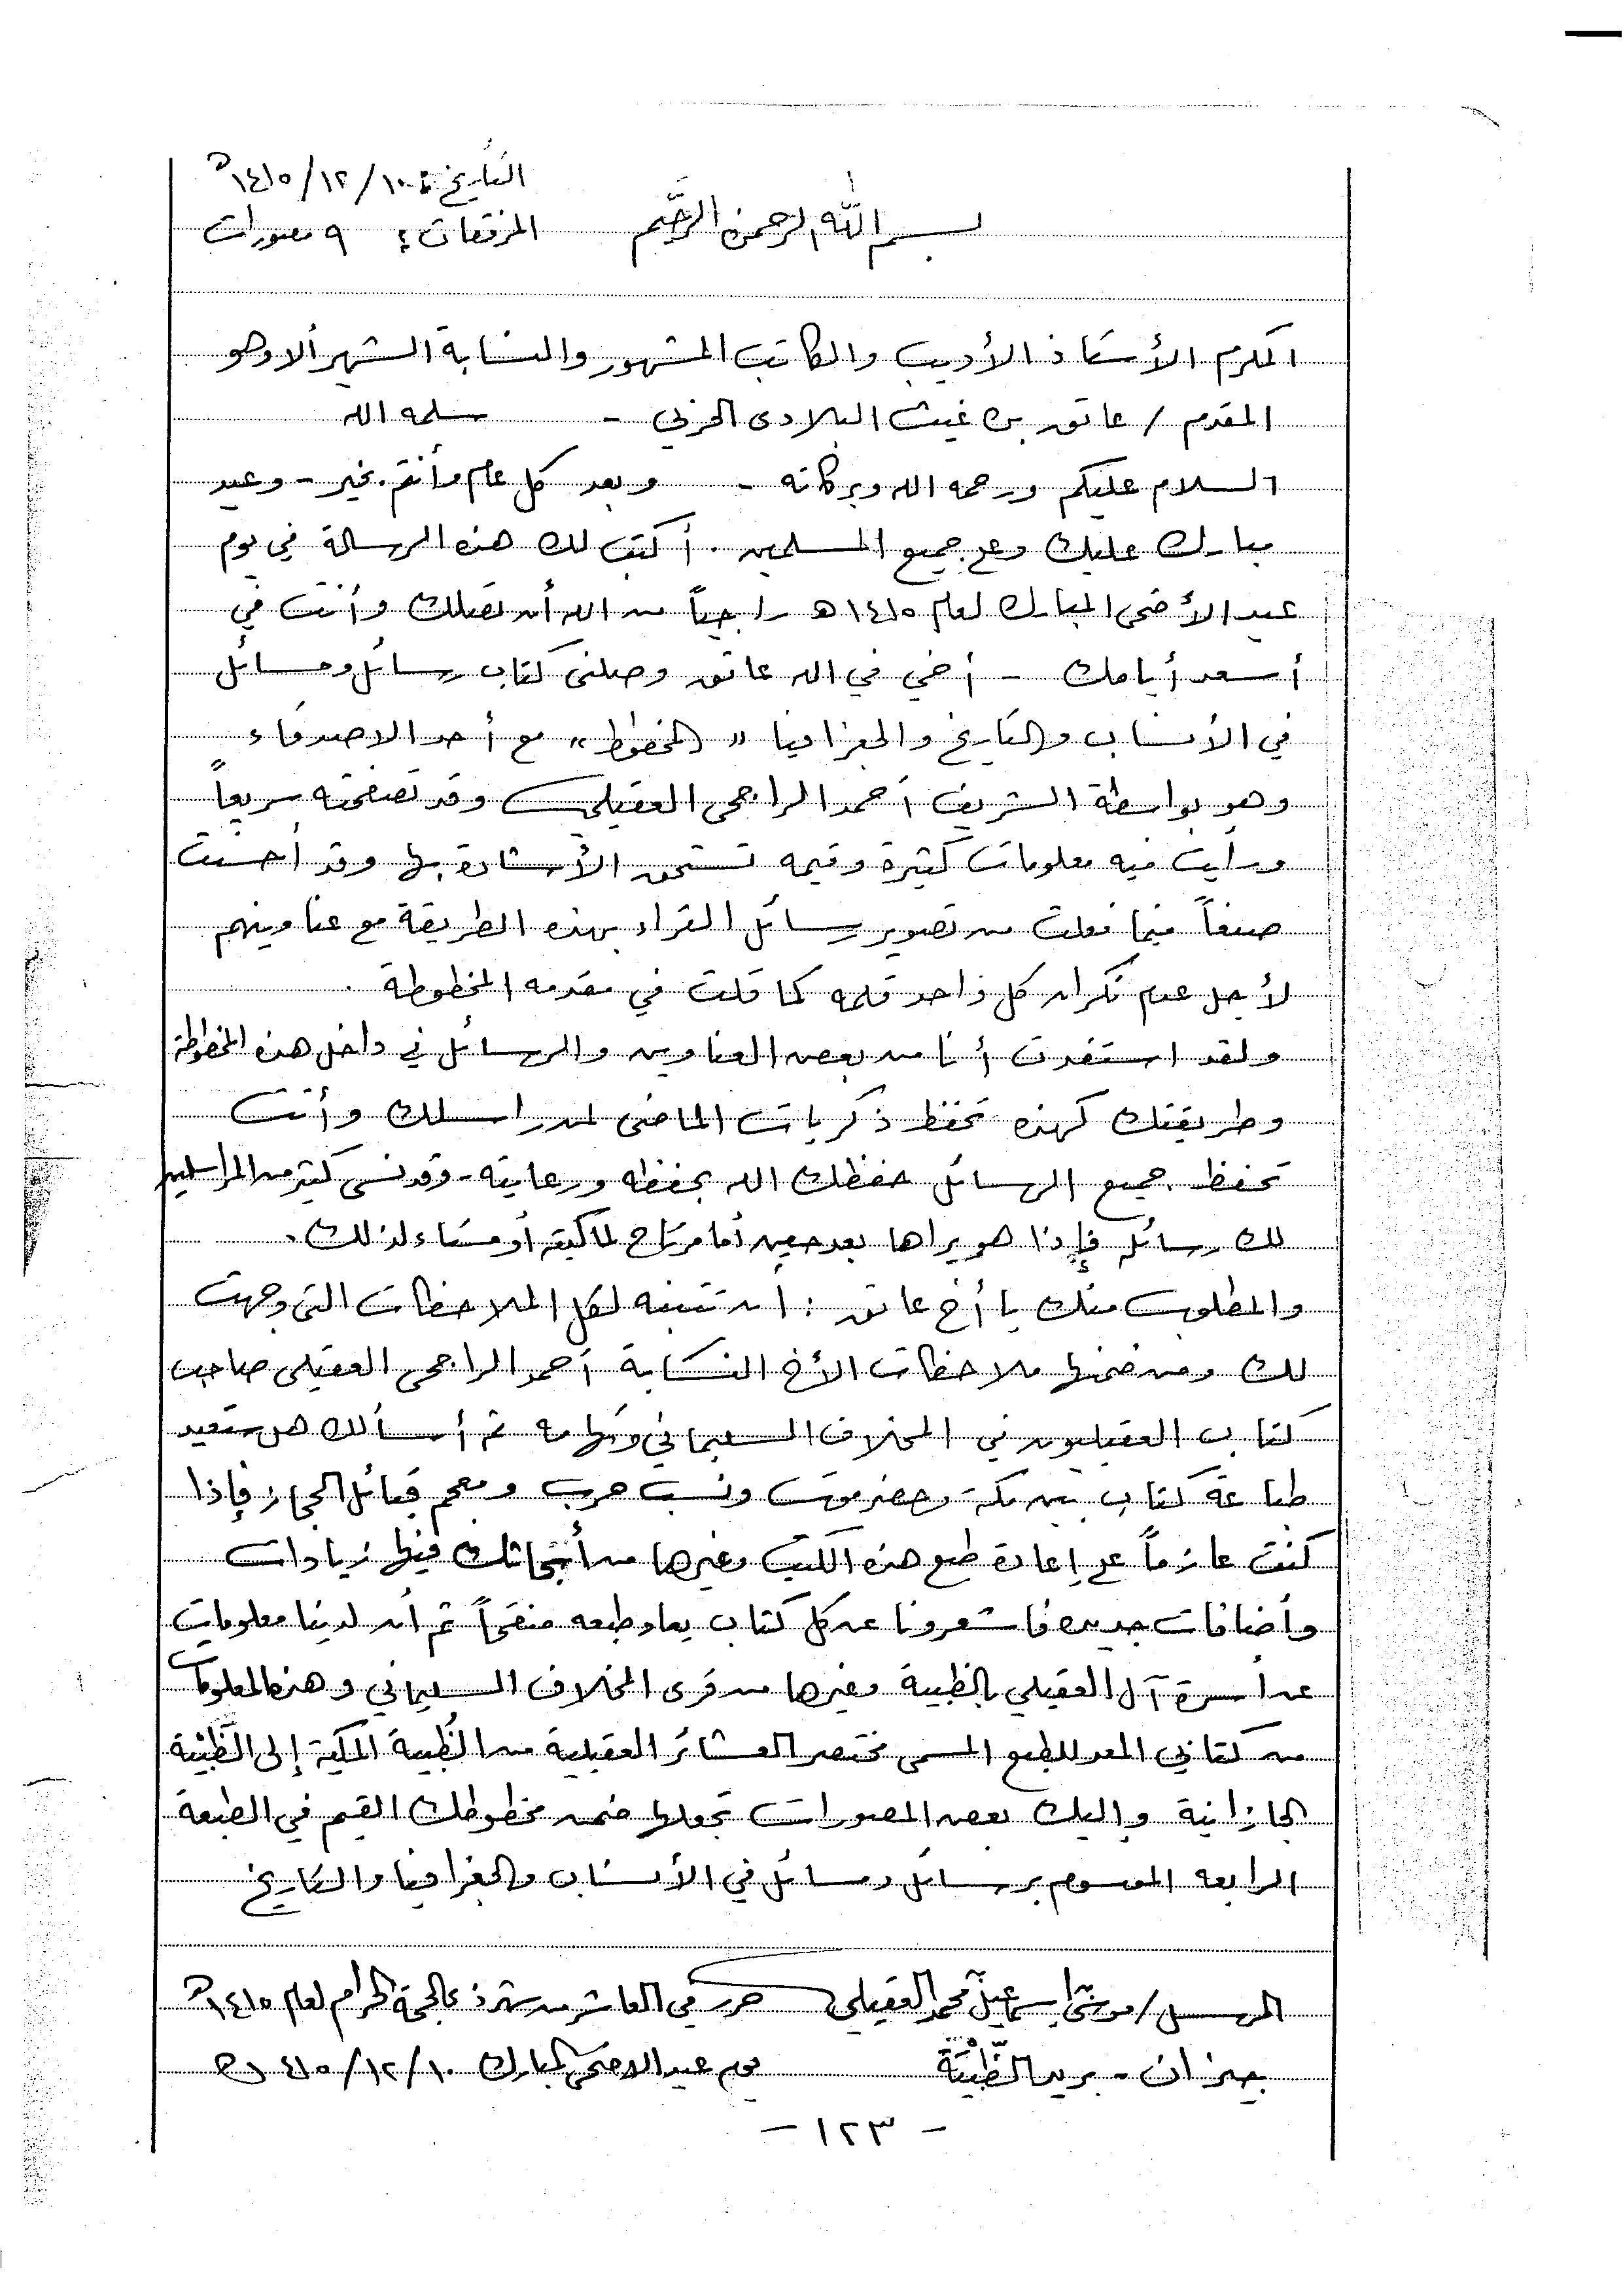 التاريخ: ١٤١٥/١٢/١٠هـ
بسم الله الرحمن الرحيم المرفقات: ٩ مصورات
المكرم الأستاذ الأديب والكاتب المشهور والنسابة الشهير ألا وهو
المقدم / عاتق بن غيث البلادى الحربي - سلمه الله
السلام عليكم ورحمه الله وبركاته - وبعد كل عام وأنتم بخير - وعيد
مبارك عليك وعلى جميع المسلمين . أكتب لك هذه الرسالة في يوم
عيد الأضحى المبارك لعام ١٤١٥ هـ راجياً من الله أن تصلك وأنت في
أسعد أيامك - أخي في الله عاتق وصلنى كتاب رسائل ومسائل
في الأنساب والتاريخ والجغرافيا « المخطوط » مع أحد الاصدقاء
وهو بواسطة الشريف أحمد الراجحى العقيلي وقد تصفحته سريعاً
ورأيت فيه معلومات كثيرة وقيمه تستحق الأشادة بها وقد أحسنت
صنعاً فيما فعلت من تصوير رسائل القراء بهذه الطريقة مع عناوينهم
لأجل عدم نكران كل واحد قلمه كما قلت في مقدمه المخطوطة .
ولقد استفدت أنا من بعض العناوين والرسائل في داخل هذه المخطوطة
وطريقتك كهذه تحفظ ذكريات الماضى لمن راسلك وأنت
تحفظ جميع الرسائل حفظك الله بحفظه ورعايته - وقد نسى كثير من المراسلين
لك رسائله فإذا هو يراها بعد حين أما مرتاح لما كتبه أو مستاء لذلك .
والمطلوب منك يا أخ عاتق : أن تتنبه لكل الملاحظات التى وجهت
لك ومن ضمنها ملاحظات الأخ النسابة أحمد الراجحى العقيلى صاحب
كتاب العقيليون في المخلاف السليماني وتهامه ثم أسألك هل ستعيد
طباعة كتاب بين مكة وحضرموت ونسب حرب ومعجم قبائل الحجاز فإذا
كنت عازماً على إعادة طبع هذه الكتب وغيرها من أبحاثك فيها زيادات
وأضافات جديده فاشعرونا عن كل كتاب يعاد طبعه منقحاً ثم أن لدينا معلومات
عن اسرة آل العقيلي بالظبية وغيرها من قرى المخلاف السليماني وهذه المعلومات
من كتابي المعد للطبع المسمى مختصر العشائر العقيلية من الظُبية المكية إلى الظَّبْيَة
الجازانية وإليك بعض المصورات تجعلها ضمن مخطوطك القيم في الطبعة
الرابعه الموسوم برسائل ومسائل في الأنساب والجغرافيا والتاريخ
المرسل / موسى إسماعيل محمد العقيلي حرر في العاشر من شهر ذي الحجة الحرام لعام ١٤١٥هـ
جيزان - بريد الظَّبْيَة يوم عيد الاضحى المبارك ١٤١٥/١٢/١٠هـ
- ١٢٣ -